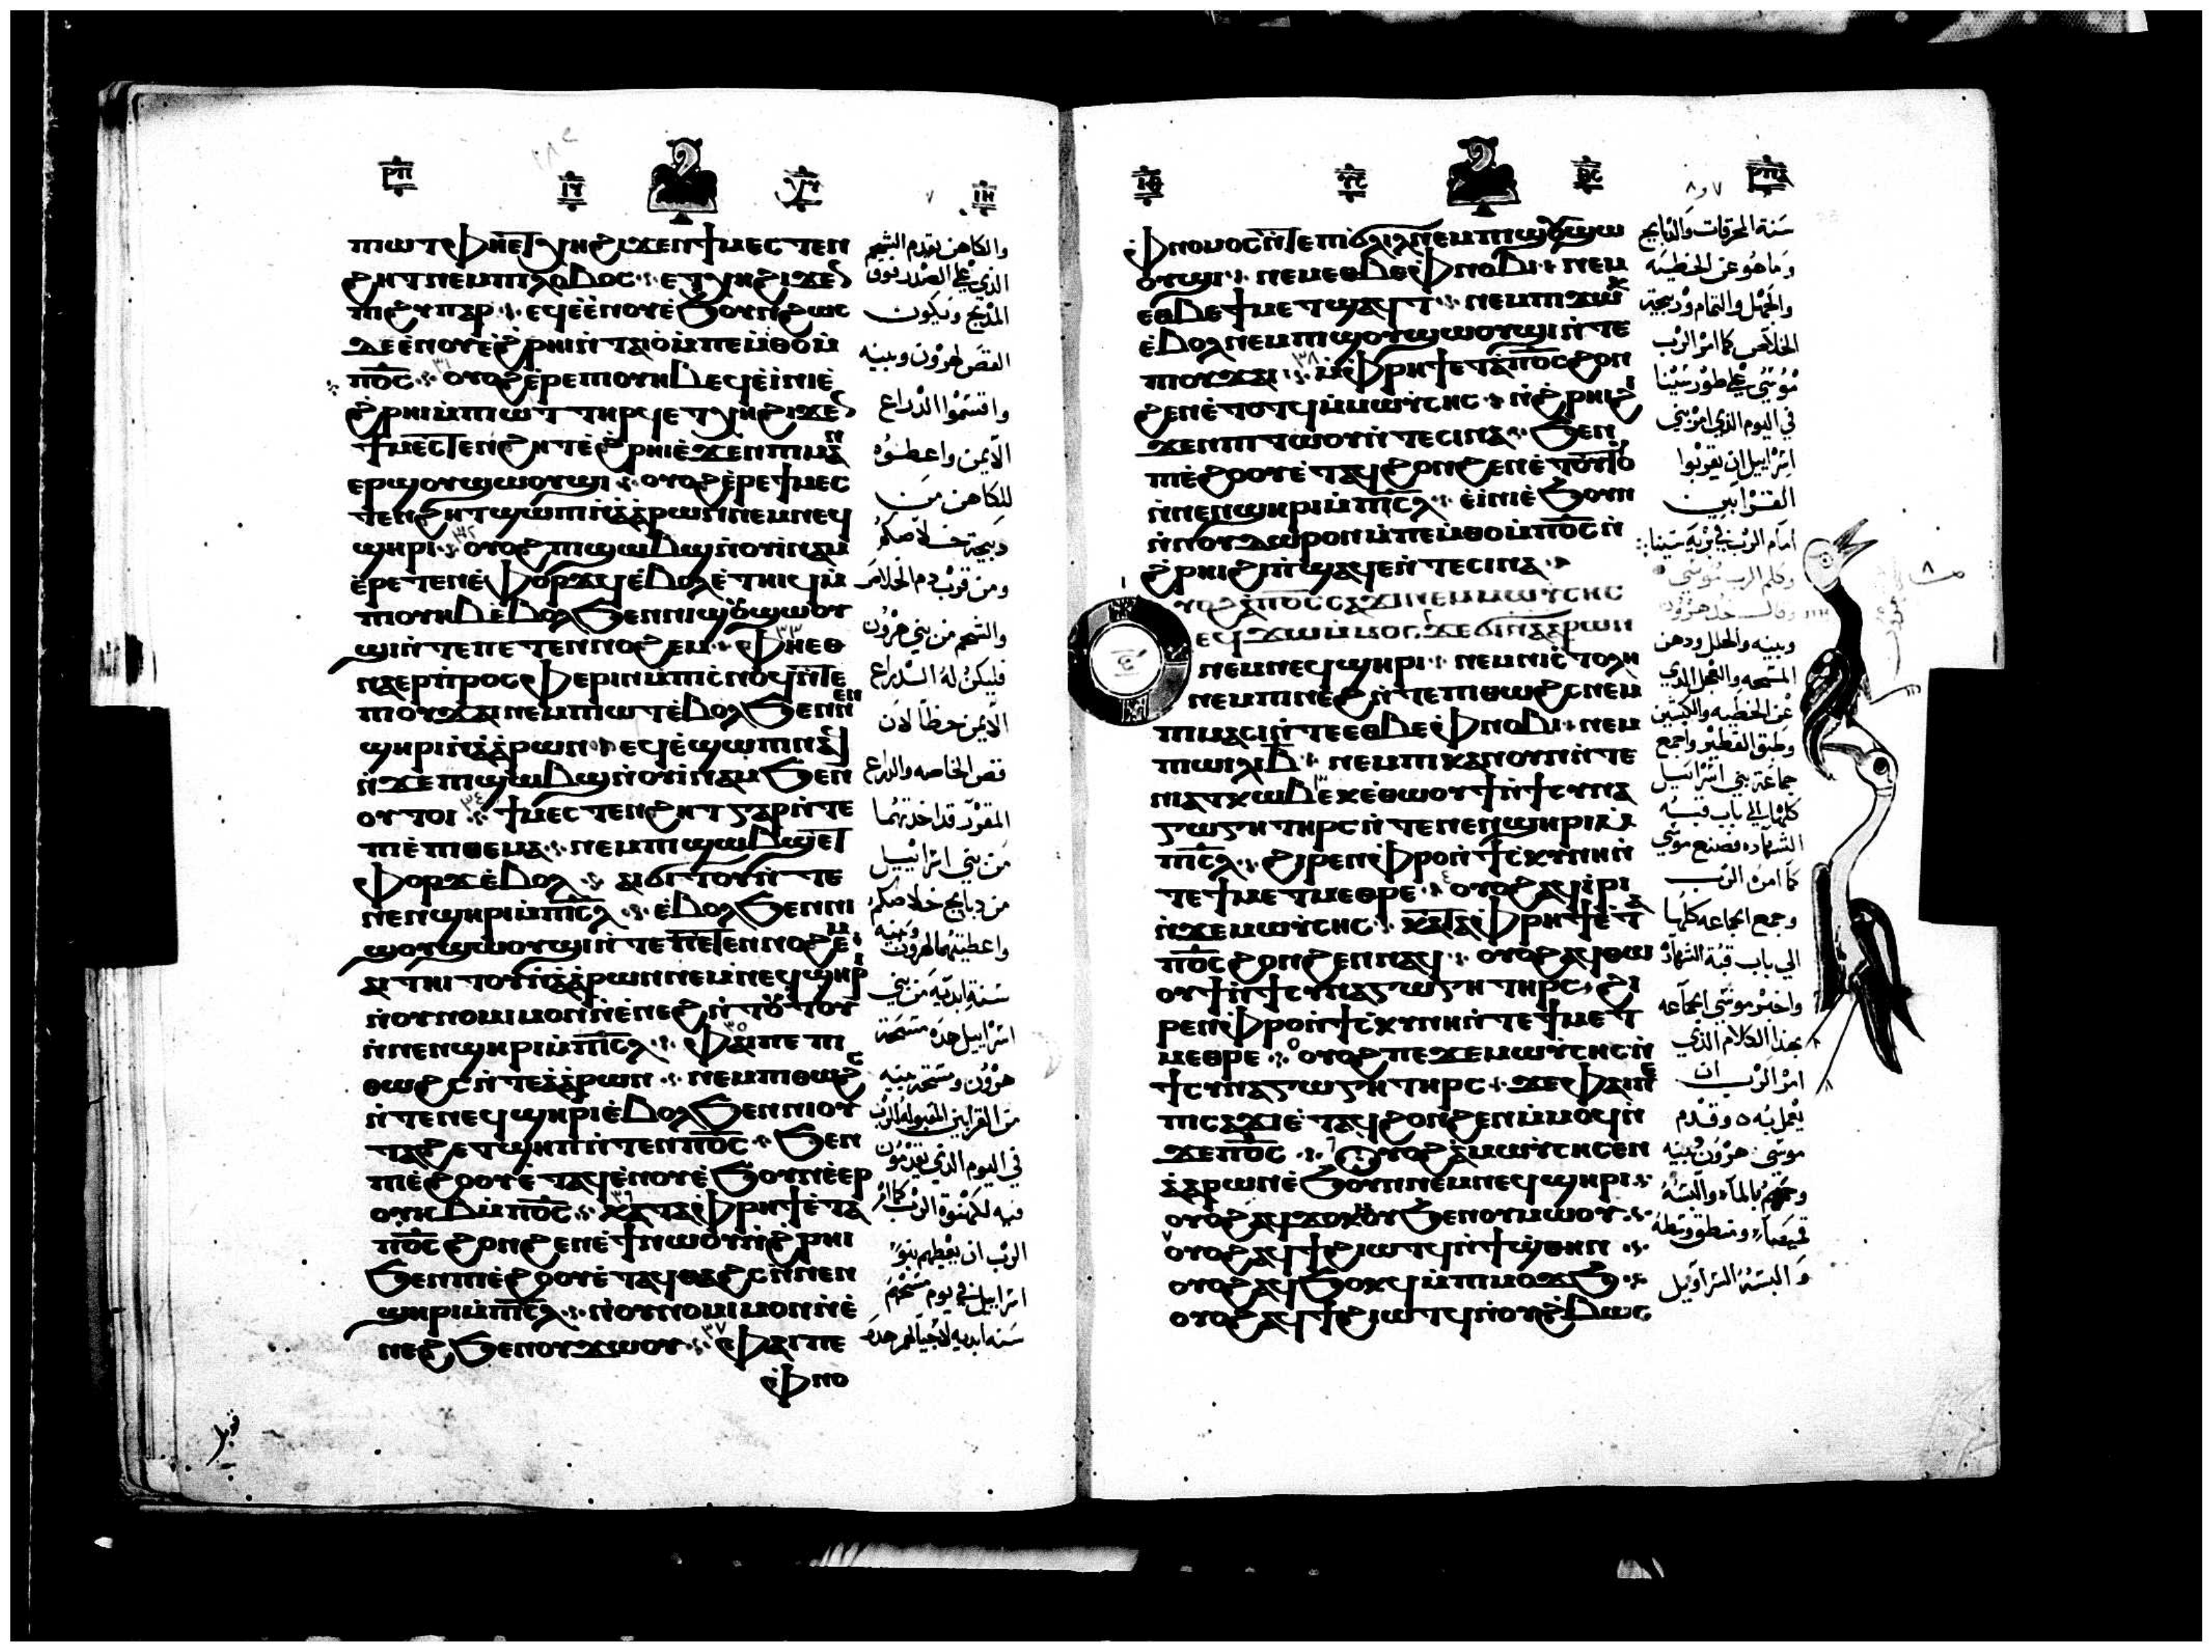 ⲣⲡ
ⲡⲓⲱⲧ ⲫⲏⲉⲧⲭⲏ ϩⲓϫⲉⲛ ϯⲙⲉⲥⲧⲉⲛ
ϩⲏⲧ ⲛⲉⲙ ⲡⲓⲗⲟⲃⲟⲥ ⲉⲧⲭⲏ ϩⲓϫⲉ
ⲡⲓϩⲩⲡⲁⲣ ⲉϥⲉⲉⲛⲟⲩ ⲉϧⲟⲩⲛ ϩⲱⲥ
ⲡ̅ⲟ̅ⲥ̅ ⲟⲩⲟϩ ⲉⲣⲉ ⲡⲓⲟⲩⲏⲃ ⲉϥⲉⲓⲛⲓ ⲉ
ϩⲣⲏⲓ ⲙⲡⲓⲱⲧ ⲧⲏⲣϥ ⲉⲧⲭⲏ ϩⲓϫⲉ
ϯⲙⲉⲥⲧⲉⲛϩⲏⲧ ⲉϩⲣⲏⲓ ⲉϫⲉⲛ ⲡⲓⲙⲁⲛ
ⲉⲣϣⲟⲩϣⲱⲟⲩϣⲓ ⲟⲩⲟϩ ⲉⲣⲉ ϯⲙⲉⲥ
ⲧⲉⲛϩⲏⲧ ϣⲱⲡⲓ ⲛⲁⲁⲣⲱⲛ ⲛⲉⲙ ⲛⲉϥ
ϣⲏⲣⲓ ⲟⲩⲟϩ ⲡⲓϣⲱⲃϣ ⲛⲟⲩⲓⲛⲁⲙ
ⲉⲣⲉⲧⲉⲛⲉⲫⲟⲣϫϥ ⲉⲃⲟⲗ ⲉⲧⲏⲓϥ ⲙ
ⲡⲓⲟⲩⲏⲃ ⲉⲃⲟⲗ ϧⲉⲛ ⲛⲓϣⲟⲩϣⲱⲟⲩ
ϣⲓ ⲛⲧⲉ ⲡⲉⲧⲉⲛⲛⲟϩⲉⲙ ⲫⲏⲉⲑ
ⲛⲁⲉⲣⲡⲣⲟⲥⲫⲉⲣⲓⲛ ⲙⲡⲓⲥⲛⲟϥ ⲛⲧⲉ
ⲡⲓⲟⲩϫⲁⲓ ⲛⲉⲙ ⲡⲓⲱⲧ ⲉⲃⲟⲗ ϧⲉⲛ ⲛⲉⲛ
ϣⲏⲣⲓ ⲛⲁⲁⲣⲱⲛ ⲉϥⲉϣⲱⲡⲓ ⲛⲁϥ
ⲛϫⲉ ⲡⲓϣⲱⲃϣ ⲛⲟⲩⲓⲛⲁⲙ ϧⲉⲛ
ⲟⲩⲧⲟⲓ ϯⲙⲉⲥⲧⲉⲛϩⲏⲧ ⲅⲁⲣ ⲛⲧⲉ
ⲡⲓⲉⲡⲓⲑⲉⲙⲁ ⲛⲉⲙ ⲡⲓϣⲱⲃϣ ⲉⲧ
ⲫⲟⲣϫ ⲉⲃⲟⲗ ⲁⲓϭⲓⲧⲟⲩ ⲛⲧⲉ
ⲛⲉⲛϣⲏⲣⲓ ⲙⲡⲓⲥⲗ ⲉⲃⲟⲗ ϧⲉⲛ ⲛⲓ
ϣⲟⲩϣⲱⲟⲩϣⲓ ⲛⲧⲉ ⲡⲉⲧⲉⲛⲛⲟϩⲉⲙ
ⲁⲓⲧⲏⲓⲧⲟⲩ ⲛⲁⲁⲣⲱⲛ ⲛⲉⲙ ⲛⲉϥϣⲏⲣⲓ
ⲛⲟⲩⲛⲟⲙⲓⲙⲟⲛ ⲛⲉⲛⲉϩ ⲛⲧⲟⲧⲟⲩ
ⲛⲛⲉⲛϣⲏⲣⲓ ⲙⲡⲓⲥⲗ ⲫⲁⲓ ⲡⲉ ⲡⲓ
ⲑⲱϩⲥ ⲛⲧⲉ ⲁⲁⲣⲱⲛ ⲛⲉⲙ ⲡⲓⲑⲱϩⲥ
ⲛⲧⲉ ⲛⲉϥϣⲏⲣⲓ ⲉⲃⲟⲗ ϧⲉⲛ ⲛⲓⲟⲩ
ⲧⲁϩ ⲉⲧϣⲏⲡ ⲛⲧⲉⲛ ⲡ̅ⲟ̅ⲥ̅ ϧⲉⲛ
ⲡⲓⲉϩⲟⲟⲩ ⲉⲧⲁϥⲉⲛⲟⲩ ⲉϧⲟⲩⲛ ⲉⲉⲣ
ⲟⲩⲏⲃ ⲙⲡ̅ⲟ̅ⲥ̅ ⲕⲁⲧⲁ ⲫⲣⲏϯ ⲉⲧⲁ
ⲡ̅ⲟ̅ⲥ̅ ϩⲟⲛϩⲉⲛ ⲉϯⲛⲱⲟⲩ ⲛϩⲣⲏⲓ
ϧⲉⲛ ⲡⲓⲉϩⲟⲟⲩ ⲉⲧⲁϥⲑⲁϩⲥ ⲛⲛⲉⲛ
ϣⲏⲣⲓ ⲙⲡⲓⲥⲗ ⲛⲟⲩⲛⲟⲙⲓⲙⲟⲛ ⲛⲉ
ⲛⲉϩ ϧⲉⲛ ⲟⲩϫⲱⲟⲩ ⲫⲁⲓ ⲡⲉ
ⲫⲛⲟ
والكاهن يقدم الشحم
الذي على الصدر فوق
المذبح ويكون
القص لهرون وبنيه
واقسموا الذراع
الايمن واعطوه
للكاهن من
ذبيحة خلاصكم
ومن قرب دم الخلاص
والشحم من بني هرون
فليكن له الذراع
الايمن حظا لان
قص الخاصه والذراع
المفرز قد اخذتهما
من بني اسراييل
من ذبايح خلاصكم
واعطيتهما لهرون وبنيه
سنة ابديه من بني
اسراييل هذه مسحة
هرون ومسحة بنيه
من القرابين المقبوله للرب
في اليوم الذي يقدمون
فيه لكهنوة الرب كما امر
الرب ان يعطيهم بنوا
اسراييل في يوم مسحهم
سنه ابديه لاجيالهم هذه
ⲫⲛⲟⲙⲟⲥ ⲛⲧⲉ ⲡⲓϭⲗⲓⲗ ⲛⲉⲙ ⲡⲓϣⲟⲩϣⲱ
ⲟⲩϣⲓ ⲛⲉⲙ ⲉⲑⲃⲉ ⲫⲛⲟⲃⲓ ⲛⲉⲙ
ⲉⲑⲃⲉ ϯⲙⲉⲧϣⲁϥⲧ ⲛⲉⲙ ⲡⲓϫⲱⲕ
ⲉⲃⲟⲗ ⲛⲉⲙ ⲡⲓϣⲟⲩϣⲱⲟⲩϣⲓ ⲛⲧⲉ
ⲡⲓⲟⲩϫⲁⲓ ⲙⲫⲣⲏϯ ⲉⲧⲁ ⲡ̅ⲟ̅ⲥ̅ ϩⲟⲛ
ϩⲉⲛ ⲉⲧⲟⲧϥ ⲙⲙⲱⲩⲥⲏⲥ ⲛϩⲣⲏⲓ ϩⲓ
ϫⲉⲛ ⲡⲓⲧⲱⲟⲩ ⲛⲧⲉ ⲥⲓⲛⲁ ϧⲉⲛ
ⲡⲓⲉϩⲟⲟⲩ ⲉⲧⲁϥϩⲟⲛϩⲉⲛ ⲉⲧⲟⲧⲟⲩ
ⲛⲛⲉⲛϣⲏⲣⲓ ⲙⲡⲓⲥⲗ ⲉⲓⲛⲓ ⲉϧⲟⲩⲛ
ⲛⲛⲟⲩⲇⲱⲣⲟⲛ ⲙⲡⲉⲙⲑⲟ ⲙⲡ̅ⲟ̅ⲥ̅ ⲛ
ϩⲣⲏⲓ ϩⲓ ⲡϣⲁϥⲉ ⲛⲧⲉ ⲥⲓⲛⲁ
ⲟⲩⲟϩ ⲁ ⲡ̅ⲟ̅ⲥ̅ ⲥⲁϫⲓ ⲛⲉⲙ ⲙⲱⲩⲥⲏⲥ
ⲉϥϫⲱ ⲙⲙⲟⲥ ϫⲉ ϭⲓ ⲛⲁⲁⲣⲱⲛ
ⲛⲉⲙ ⲛⲉϥϣⲏⲣⲓ ⲛⲉⲙ ⲛⲓⲥⲧⲟⲗⲏ
ⲛⲉⲙ ⲡⲓⲛⲉϩ ⲛⲧⲉ ⲡⲓⲑⲱϩⲥ ⲛⲉⲙ
ⲡⲓⲙⲁⲥⲓ ⲛⲧⲉ ⲉⲑⲃⲉ ⲫⲛⲟⲃⲓ ⲛⲉⲙ
ⲡⲓⲱⲓⲗⲓ ⲃ̅ ⲛⲉⲙ ⲡⲓⲕⲁⲛⲟⲩⲛ ⲛⲧⲉ
ⲛⲓⲁⲧⲕⲱⲃ ⲉⲕⲉⲑⲱⲟⲩϯ ⲛϯⲥⲩⲛⲁ
ⲅⲱⲅⲏ ⲧⲏⲣⲥ ⲛⲧⲉ ⲛⲉⲛϣⲏⲣⲓ ⲙ
ⲡⲓⲥⲗ ϩⲓⲣⲉⲛ ⲫⲣⲟ ⲛϯⲥⲕⲩⲛⲏ ⲛ
ⲧⲉ ϯⲙⲉⲧⲙⲉⲑⲣⲉ ⲟⲩⲟϩ ⲁϥⲓⲣⲓ
ⲛϫⲉ ⲙⲱⲩⲥⲏⲥ ⲕⲁⲧⲁ ⲫⲣⲏϯ ⲉⲧⲁ
ⲡ̅ⲟ̅ⲥ̅ ϩⲟⲛϩⲉⲛ ⲛⲁϥ ⲟⲩⲟϩ ⲁϥⲑⲱ
ⲟⲩϯ ⲛϯⲥⲩⲛⲁⲅⲱⲅⲏ ⲧⲏⲣⲥ ϩⲓ
ⲣⲉⲛ ⲫⲣⲟ ⲛϯⲥⲕⲩⲛⲏ ⲛⲧⲉ ϯⲙⲉⲧ
ⲙⲉⲑⲣⲉ ⲟⲩⲟϩ ⲡⲉϫⲉ ⲙⲱⲩⲥⲏⲥ ⲛ
ϯⲥⲩⲛⲁⲅⲱⲅⲏ ⲧⲏⲣⲥ ϫⲉ ⲫⲁⲓ ⲡⲉ
ⲡⲓⲥⲁϫⲓ ⲉⲧⲁϥϩⲟⲛϩⲉⲛ ⲙⲙⲟϥ ⲛ
ϫⲉ ⲡ̅ⲟ̅ⲥ̅ ⲟⲩⲟϩ ⲁ ⲙⲱⲩⲥⲏⲥ ⲉⲛ
ⲁⲁⲣⲱⲛ ⲉϧⲟⲩⲛ ⲛⲉⲙ ⲛⲉϥϣⲏⲣⲓ
ⲟⲩⲟϩ ⲁϥϫⲟⲕⲙⲟⲩ ϧⲉⲛ ⲟⲩⲙⲱⲟⲩ
ⲟⲩⲟϩ ⲁϥϯ ϩⲓⲱⲧϥ ⲛϯϣⲑⲏⲛ
ⲟⲩⲟϩ ⲁϥϧⲟⲕϥ ⲙⲡⲓⲙⲟϫϧ
ⲟⲩⲟϩ ⲁϥϯ ϩⲓⲱⲧϥ ⲛⲟⲩϩⲃⲱⲥ
سنة المحرقات والذبايح
وما هو عن الخطيه
والجهل والتمام وذبيحة
الخلاص كما امر الرب
موسي على طور سينا
في اليوم الذي امر بني
اسراييل ان يقربوا
القرابين
امام الرب في برية سينا
وكلم الرب موسي
وقال خذ هرون
وبنيه والحلل ودهن
المسحه والعجل الذي
عن الخطيه والكبشين
وطبق الفطير واجمع
جماعة بني اسراييل
كلها الي باب قبة
الشهاده فصنع موسي
كما امره الرب
وجمع الجماعه كلها
الي باب قبة الشهاده
واخبر موسي الجماعه
بهذا الكلام الذي
امر الرب ان
يعمل به وقدم
موسي هرون وبنيه
وحممهم بالماء والبسه
قميصا ومنطقه وسطه
والبسه السراويل